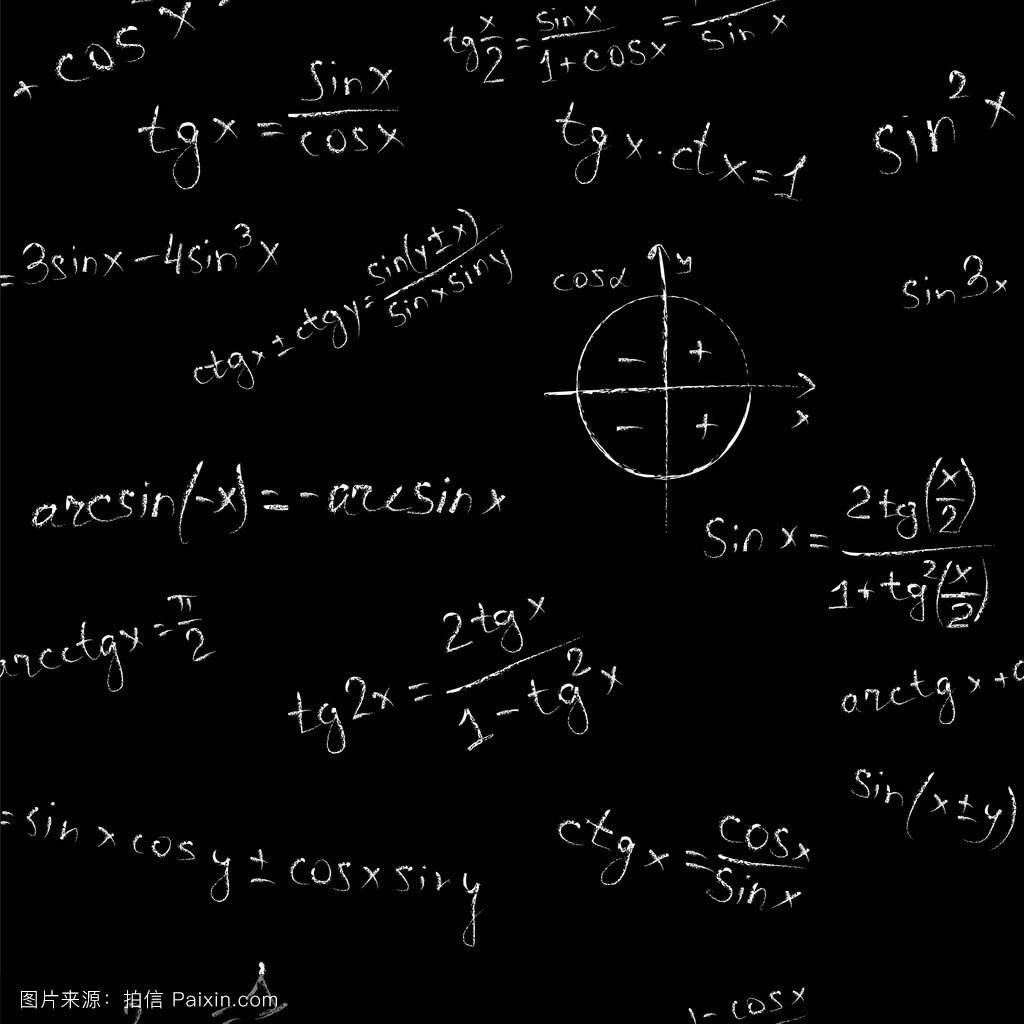 + cos² x
tg x/2 = sin x / 1+cosx = / sin x
tgx = sinx / cosx
tgx·ctx=1
sin²x
=3sinx-4sin³x
ctgx±ctgy= sin(y±x) / sinxsiny
cosα
y
sin3x
- +
x
- +
arcsin(-x)=-arcsinx
sin x= 2tg(x/2) / 1+tg²(x/2)
arcctgx=π/2
tg2x = 2tgx / 1-tg²x
arctgx+a
sin(x±y)
=sinxcosy±cosxsiny
ctgx=cosx / sinx
图片来源：拍信 Paixin.com
1-cosx